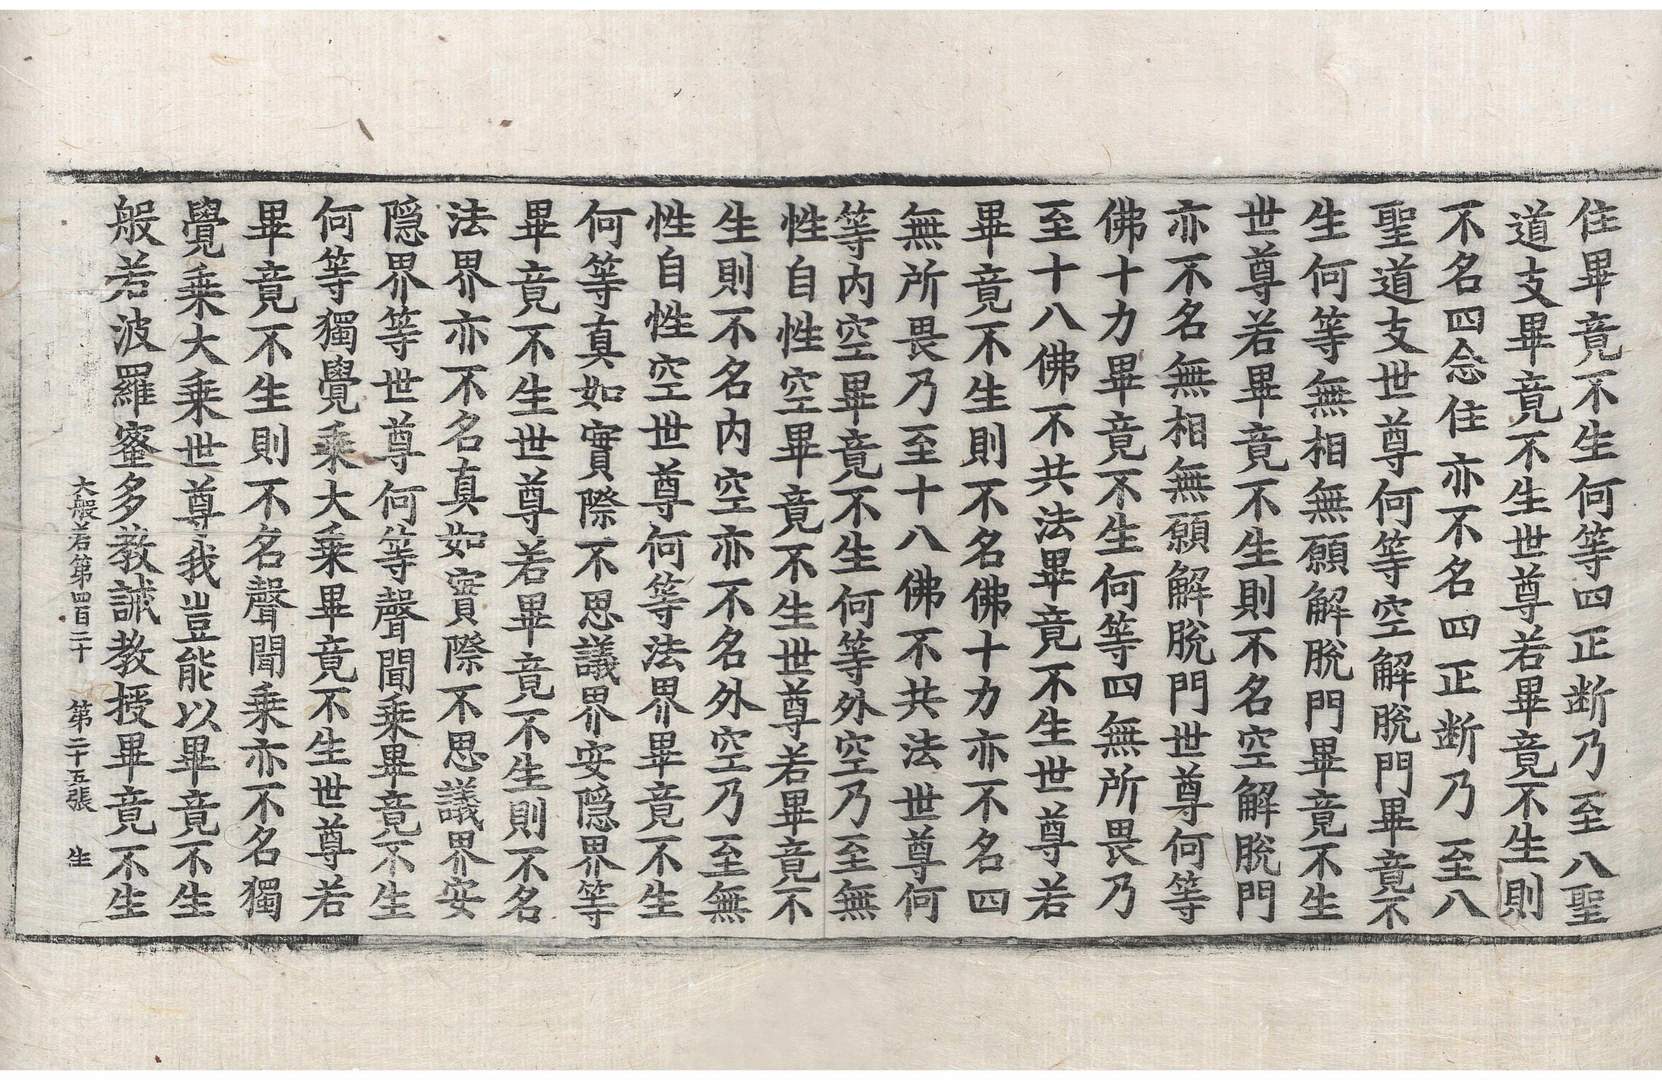 住畢竟不生何等四正斷乃至八聖
道支畢竟不生世尊若畢竟不生則
不名四念住亦不名四正斷乃至八
聖道支世尊何等空解脫門畢竟不
生何等無相無願解脫門畢竟不生
世尊若畢竟不生則不名空解脫門
亦不名無相無願解脫門世尊何等
佛十力畢竟不生何等四無所畏乃
至十八佛不共法畢竟不生世尊若
畢竟不生則不名佛十力亦不名四
無所畏乃至十八佛不共法世尊何
等內空畢竟不生何等外空乃至無
性自性空畢竟不生世尊若畢竟不
生則不名內空亦不名外空乃至無
性自性空世尊何等法界畢竟不生
何等真如實際不思議界安隱界等
畢竟不生世尊若畢竟不生則不名
法界亦不名真如實際不思議界安
隱界等世尊何等聲聞乘畢竟不生
何等獨覺乘大乘畢竟不生世尊若
畢竟不生則不名聲聞乘亦不名獨
覺乘大乘世尊我豈能以畢竟不生
般若波羅蜜多教誡教授畢竟不生
大般若第四百二十 第二十五張 生